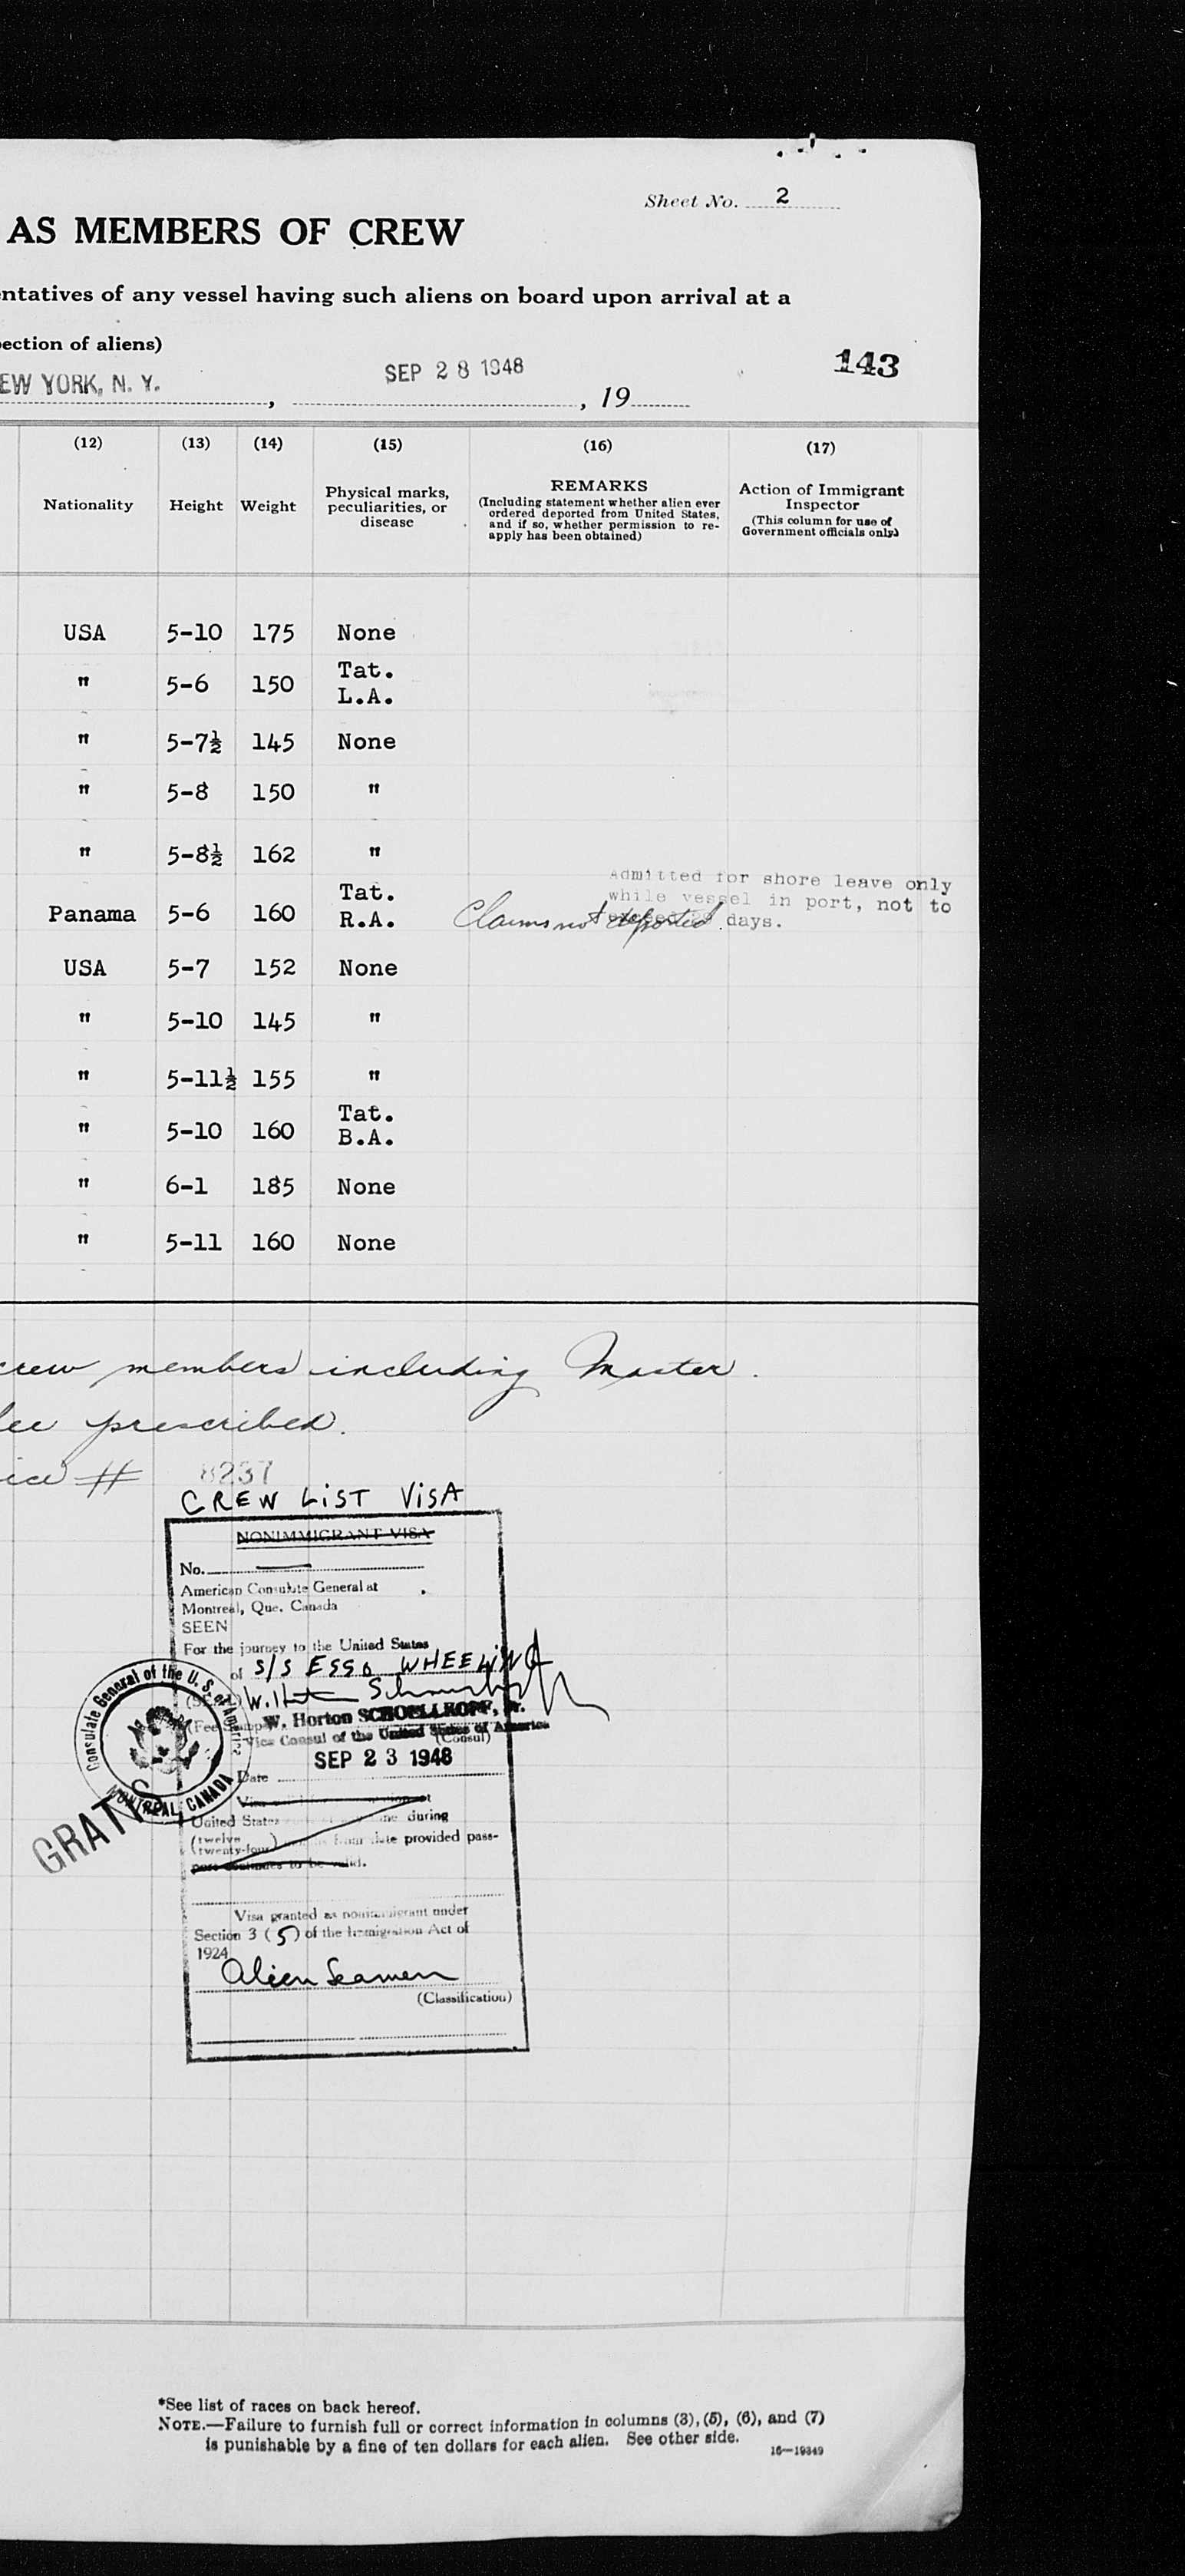 Sheet No. 2
AS MEMBERS OF CREW
ntatives of any vessel having such aliens on board upon arrival at a
ection of aliens)
EW YORK, N. Y. , SEP 28 1948 , 19
143
(12) (13) (14) (15) (16) (17)
Nationality Height Weight Physical marks, peculiarities, or disease
REMARKS
(Including statement whether alien ever
ordered deported from United States,
and if so, whether permission to re-
apply has been obtained)
Action of Immigrant
Inspector
(This column for use of
Government officials only)
USA 5-10 175 None
" 5-6 150 Tat. L.A.
" 5-7½ 145 None
" 5-8 150 "
" 5-8½ 162 "
Panama 5-6 160 Tat. R.A. Claims not deported.
Admitted for shore leave only
while vessel in port, not to
days.
USA 5-7 152 None
" 5-10 145 "
" 5-11½ 155 "
" 5-10 160 Tat. B.A.
" 6-1 185 None
" 5-11 160 None
crew members including Master.
prescribed.
# 8237
CREW LIST VISA
NONIMMIGRANT VISA
No.
American Consulate General at
Montreal, Que. Canada
SEEN
For the journey to the United States
of S/S ESSO WHEELING
W. Horton SCHOELLKOPF, Jr.
Vice Consul of the United States of America
(Consul)
SEP 23 1948
Date
Consulate General of the U. S. of America
MONTREAL, CANADA
GRATIS
United States during
(twelve
twenty-four) from date provided pass-
port continues to be valid.
Visa granted as nonimmigrant under
Section 3 (5) of the Immigration Act of
1924
Alien Seamen
(Classification)
*See list of races on back hereof.
NOTE.—Failure to furnish full or correct information in columns (3), (5), (6), and (7)
is punishable by a fine of ten dollars for each alien. See other side.
16—19349